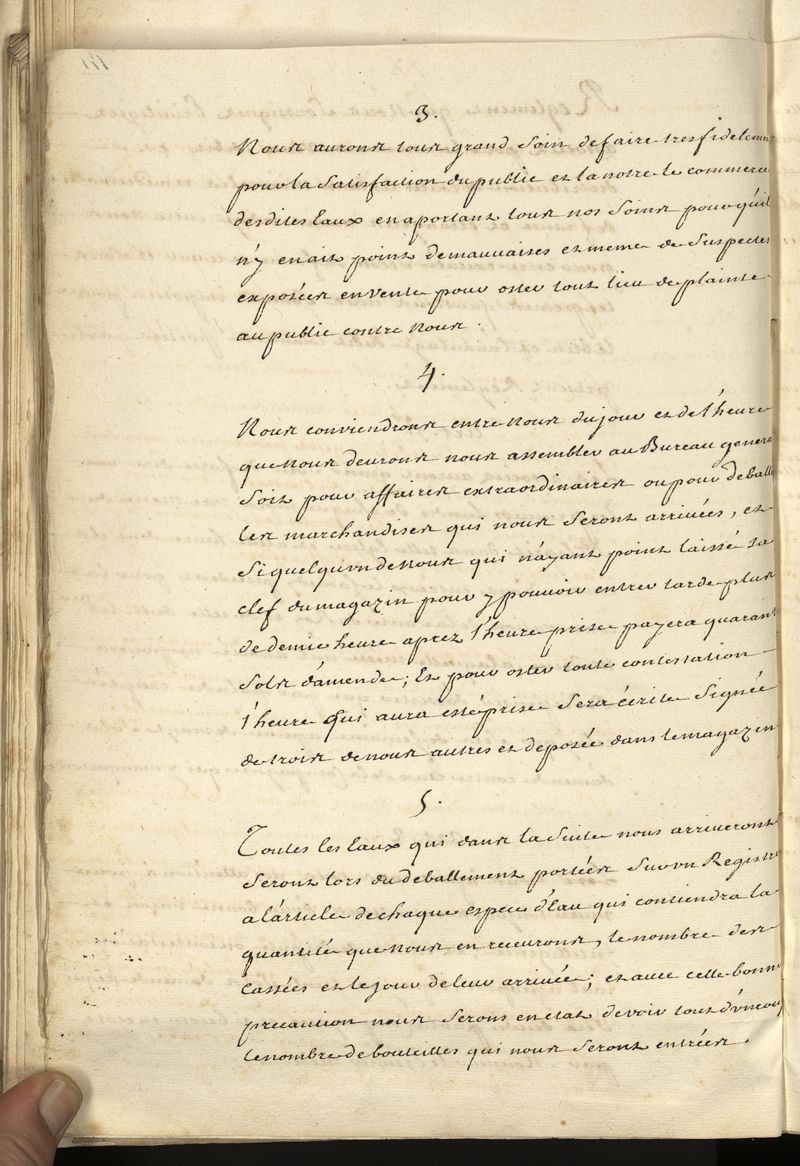 3.
Nous aurons tous grand soin de faire tres fidelement
pour la satisfaction du public et la notre le commerce
desdites Eaux en aportant tous nos soins pour qu'il
n'y en ait point de mauvaises et meme de suspectes
exposées en vente pour oster tout lieu de plainte
au public contre nous.
4.
Nous conviendrons entre nous du jour et de l'heure
que nous devrons nous assembler au Bureau general
soit pour affaires extraordinaires ou pour deballer
les marchandises qui nous seront arrivées, et
si quelqu'un de nous qui n'ayant point laissé sa
clef du magazin pour y pouvoir entrer tarde plus
de demie heure aprez l'heure prise payera quarante
sols d'amende; Et pour oster toute contestation
l'heure qui aura esté prise sera écrite signée
de trois de nous autres et deposée dans le magazin
5.
Toutes les Eaux qui dans la suite nous arriveront
seront lors du deballement portées sur un Registre
a l'article de chaque espece d'Eau qui contiendra la
quantité que nous en recevrons, le nombre des
cassées et le jour de leur arrivée; et avec cette bonne
precaution nous serons en etat de voir tout d'un coup
le nombre de bouteilles qui nous seront entrées.